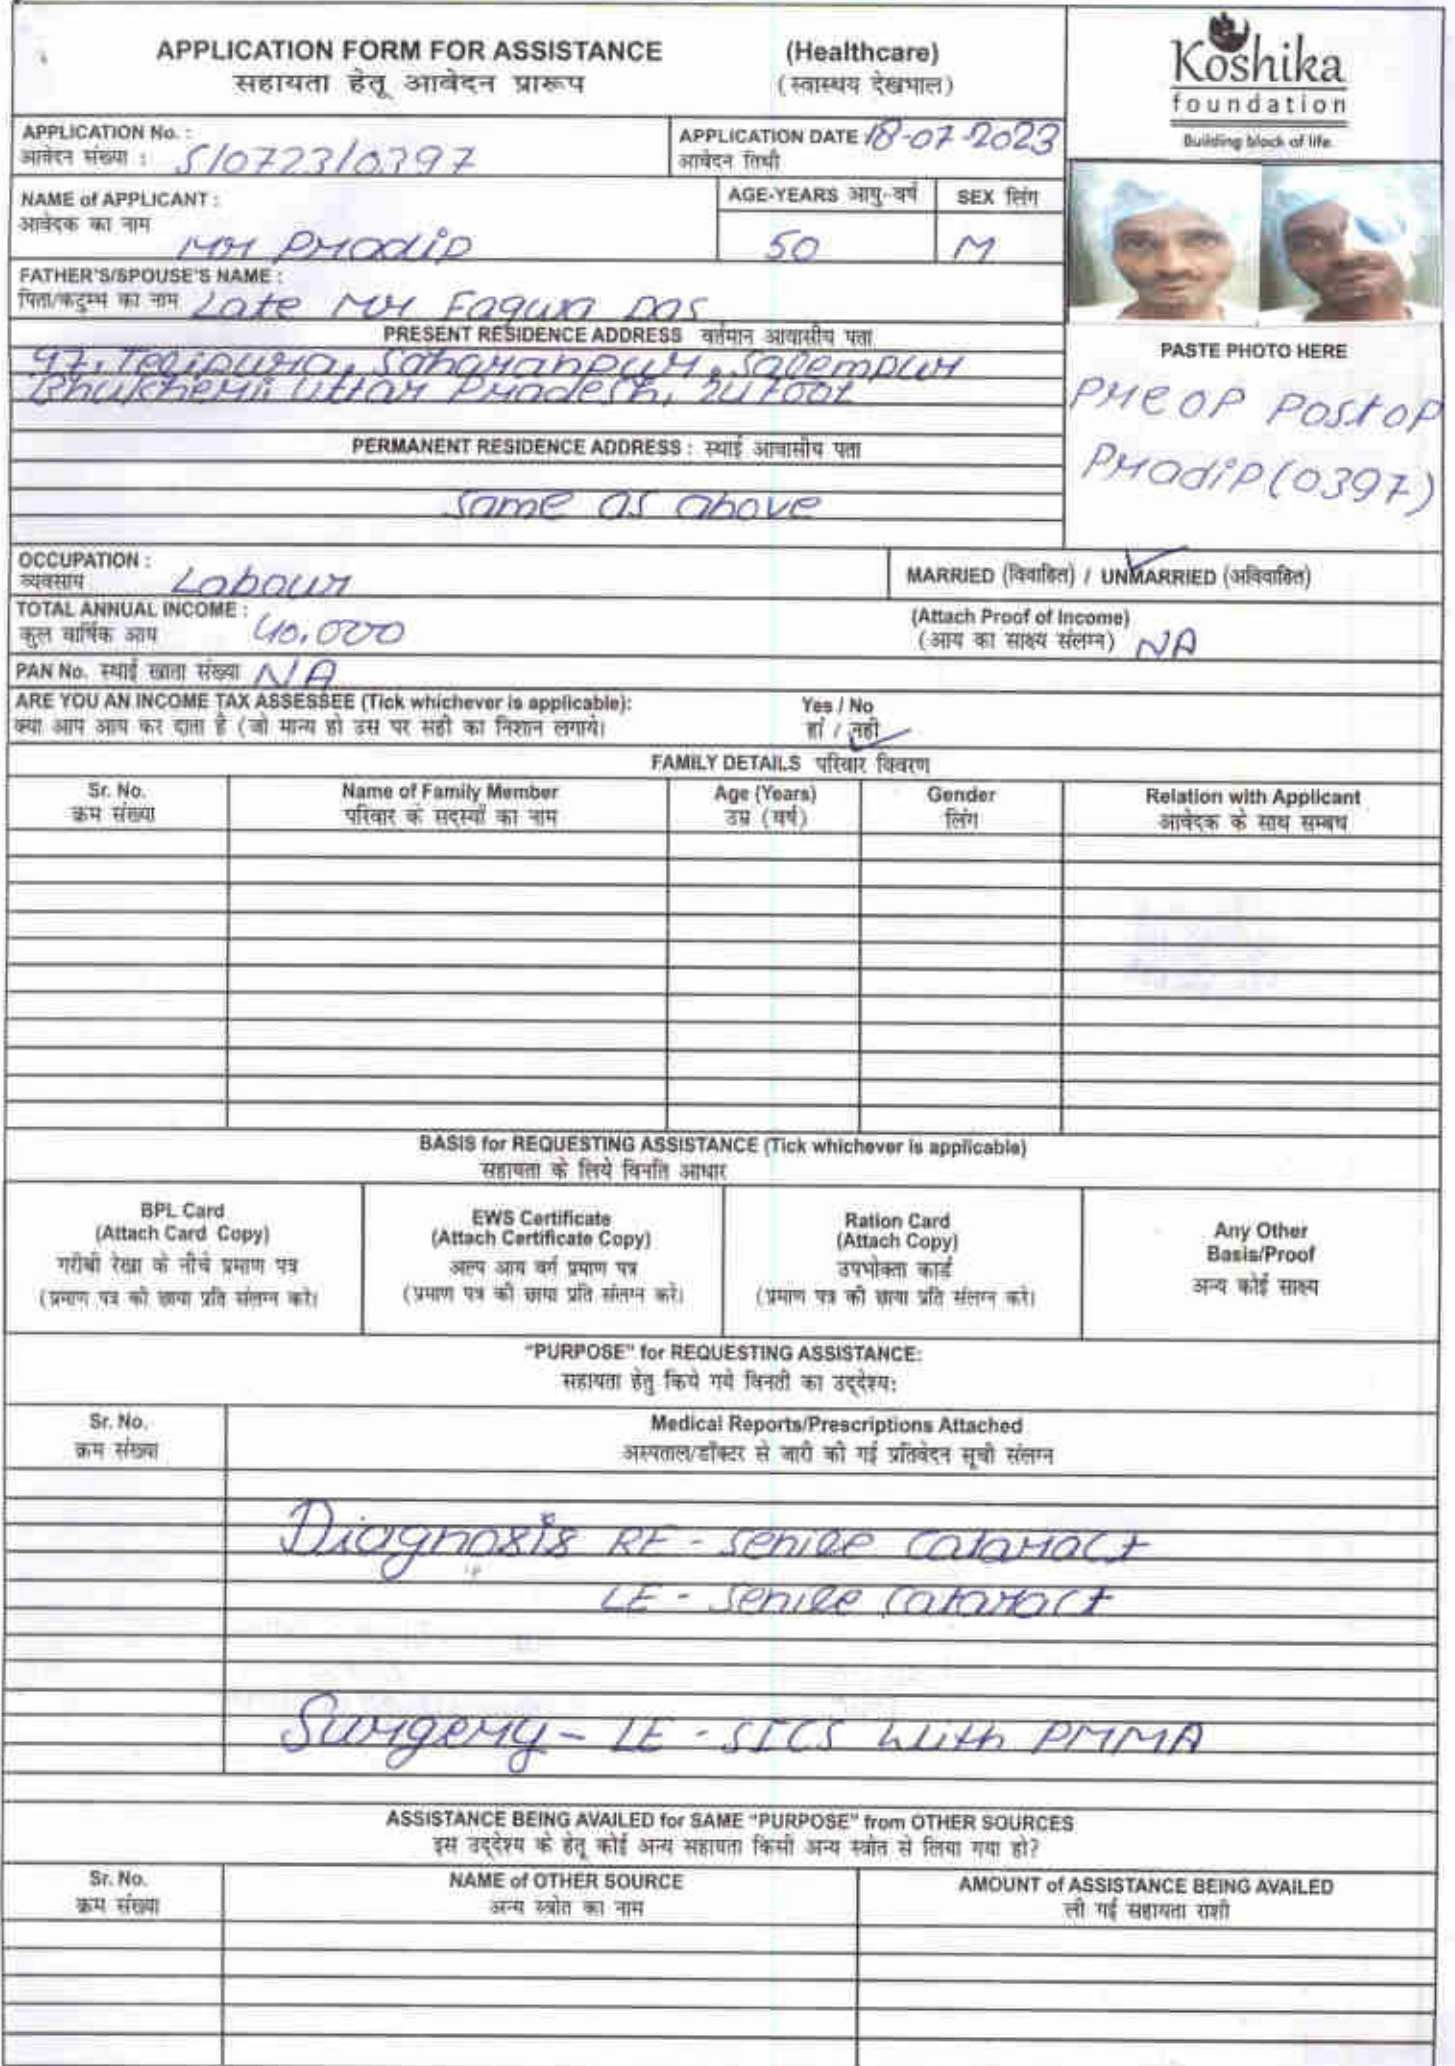 APPLICATION FORM FOR ASSISTANCE (Healthcare)
सहायता हेतू आवेदन प्रारूप (स्वास्थय देखभाल)
Koshika
foundation
Building block of life
APPLICATION No. :
आवेदन संख्या : S/0723/0397
APPLICATION DATE : 18-07-2023
आवेदन तिथी
NAME of APPLICANT :
आवेदक का नाम
Mr Pradip
AGE-YEARS आयु-वर्ष
50
SEX लिंग
M
FATHER'S/SPOUSE'S NAME :
पिता/कटुम्ब का नाम Late Mr Faqua Das
PRESENT RESIDENCE ADDRESS वर्तमान आवासीय पता
97, Telipura, Saharanpur, Salempur
Bhukheri, Uttar Pradesh, 247001
PERMANENT RESIDENCE ADDRESS : स्थाई आवासीय पता
Same as above
PASTE PHOTO HERE
Preop Postop
Pradip (0397)
OCCUPATION :
व्यवसाय Labour
MARRIED (विवाहित) / UNMARRIED (अविवाहित)
TOTAL ANNUAL INCOME :
कुल वार्षिक आय 40,000
(Attach Proof of Income)
(आय का साक्ष्य संलग्न) NA
PAN No. स्थाई खाता संख्या NA
ARE YOU AN INCOME TAX ASSESSEE (Tick whichever is applicable): Yes / No
क्या आप आय कर दाता है (जो मान्य हो उस पर सही का निशान लगाये। हां / नही
FAMILY DETAILS परिवार विवरण
Sr. No. Name of Family Member Age (Years) Gender Relation with Applicant
क्रम संख्या परिवार के सदस्यों का नाम उम्र (वर्ष) लिंग आवेदक के साथ सम्बध
BASIS for REQUESTING ASSISTANCE (Tick whichever is applicable)
सहायता के लिये विनति आधार
BPL Card
(Attach Card Copy)
गरीबी रेखा के नीचे प्रमाण पत्र
(प्रमाण पत्र की छाया प्रति संलग्न करे।
EWS Certificate
(Attach Certificate Copy)
अल्प आय वर्ग प्रमाण पत्र
(प्रमाण पत्र की छाया प्रति संलग्न करे।
Ration Card
(Attach Copy)
उपभोक्ता कार्ड
(प्रमाण पत्र की छाया प्रति संलग्न करे।
Any Other
Basis/Proof
अन्य कोई साक्ष्य
"PURPOSE" for REQUESTING ASSISTANCE:
सहायता हेतु किये गये विनती का उद्देश्य:
Sr. No. Medical Reports/Prescriptions Attached
क्रम संख्या अस्पताल/डॉक्टर से जारी की गई प्रतिवेदन सूची संलग्न
Diagnosis RE - Senile Cataract
LE - Senile Cataract
Surgery - LE - SICS with PMMA
ASSISTANCE BEING AVAILED for SAME "PURPOSE" from OTHER SOURCES
इस उद्देश्य के हेतू कोई अन्य सहायता किसी अन्य स्त्रोत से लिया गया हो?
Sr. No. NAME of OTHER SOURCE AMOUNT of ASSISTANCE BEING AVAILED
क्रम संख्या अन्य स्त्रोत का नाम ली गई सहायता राशी